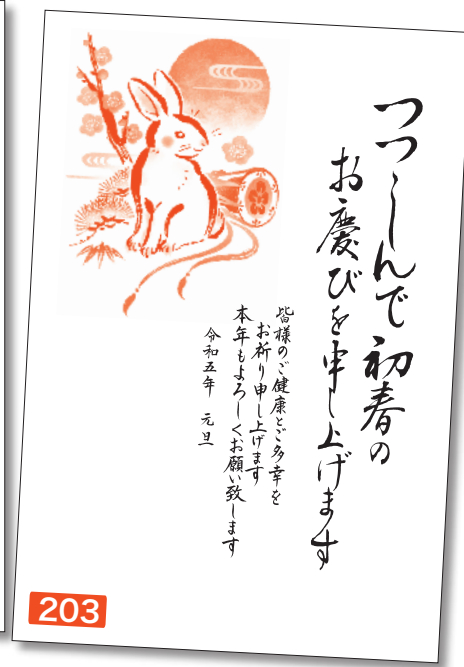 つつしんで初春の
お慶びを申し上げます
皆様のご健康とご多幸を
お祈り申し上げます
本年もよろしくお願い致します
令和五年 元旦
203